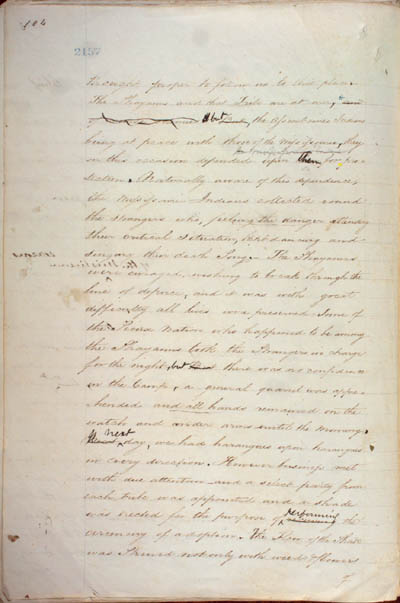 104
2157
thought proper to follow us to this place.
The Chayennes and that Tribe are at war, but the Assiniboines Indians
being at peace with those of the Missisourie, they
on this occasion depended upon them for pro-
tection. Naturally aware of this dependence,
the Missisourie Indians collected round
the strangers who, feeling the danger attending
their critical situation, kept dancing and
singing their death song. The Chayennes
were enraged, wishing to break through the
line of defence, and it was with great
difficulty all lives were preserved. Some of
the Nation who happened to be among
the Chayennes took the Strangers in charge
for the night, but there was no confidence
in the Camp, a general quarrel was appre-
hended and all hands remained on the
watch and under arms until the morning.
next day, we had harangues upon harangues
in every direction. However business met
with due attention and a select party from
each tribe was appointed and a shade
was erected for the purpose of performing the
ceremony of adoption. The Floor of the Shade
was strewed not only with weeds & flowers